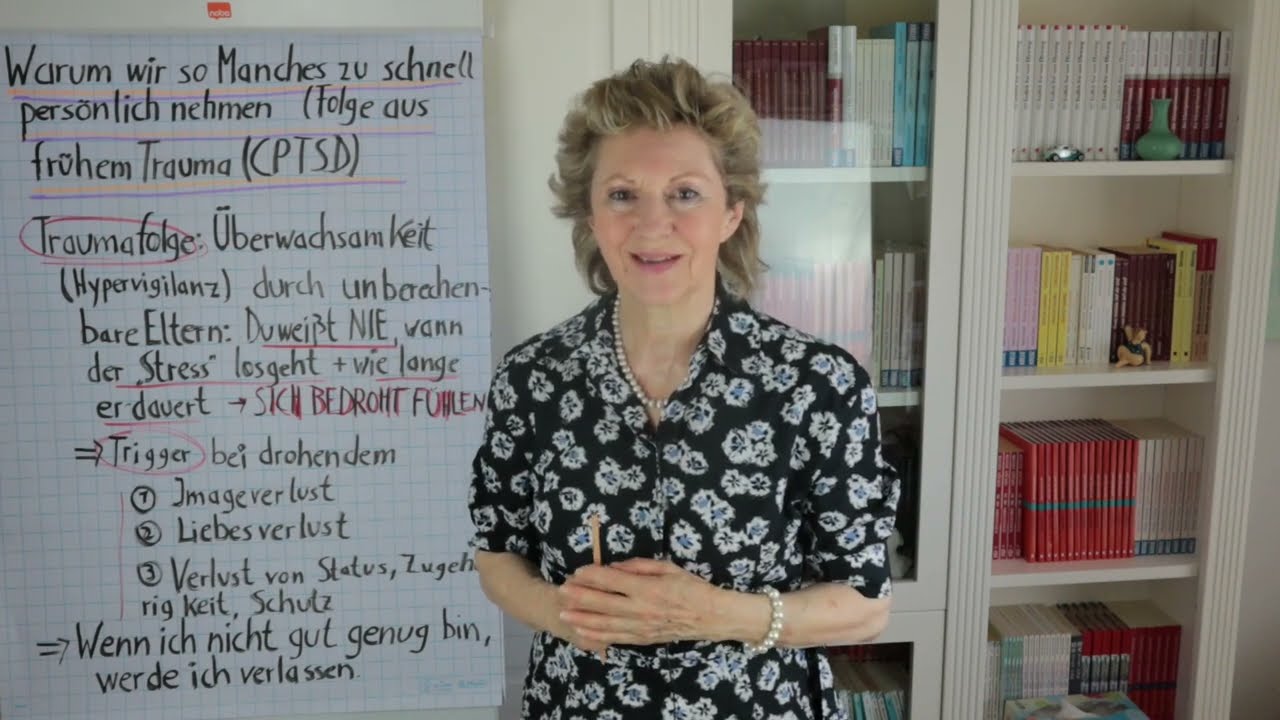 nobo
Warum wir so Manches zu schnell
persönlich nehmen (Folge aus
frühem Trauma (CPTSD)
Traumafolge: Überwachsamkeit
(Hypervigilanz) durch unberechen-
bare Eltern: Du weißt NIE, wann
der "Stress" losgeht + wie lange
er dauert → SICH BEDROHT FÜHLEN
⇒ Trigger bei drohendem
① Imageverlust
② Liebesverlust
③ Verlust von Status, Zugehö
rigkeit, Schutz
⇒ Wenn ich nicht gut genug bin,
werde ich verlassen.